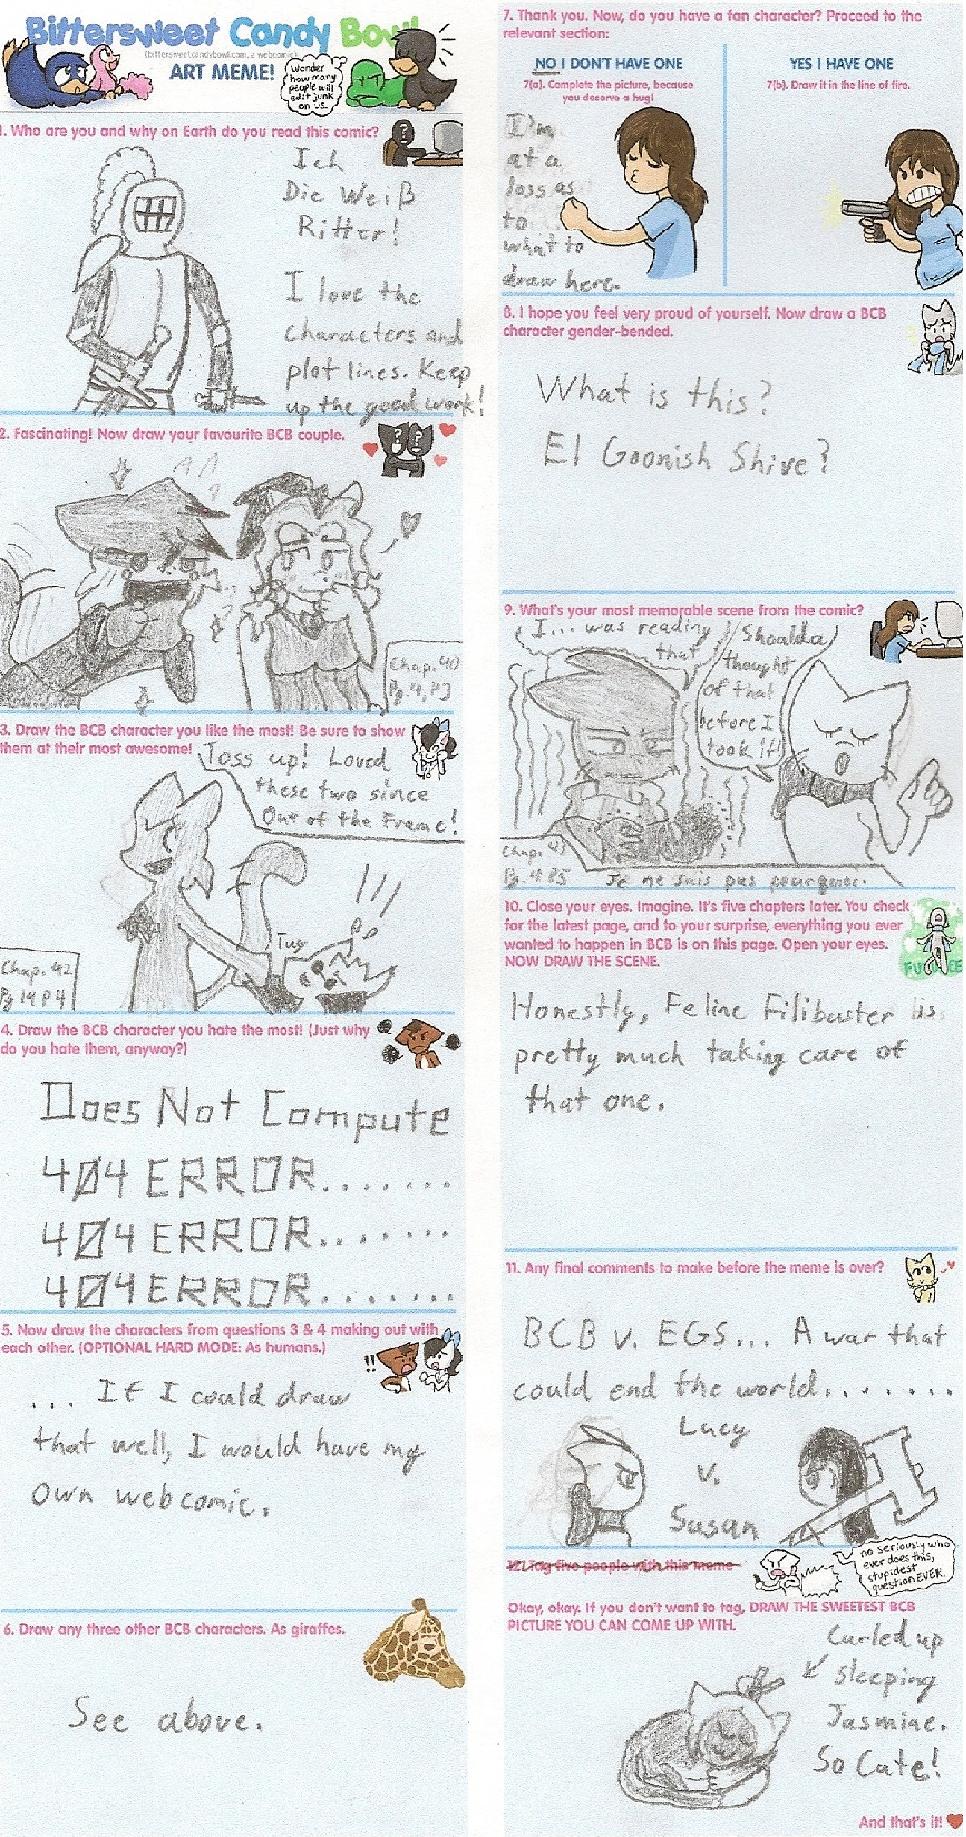 Bittersweet Candy Bowl
(bittersweetcandybowl.com, a webcomic)
ART MEME!
Wonder
how many
people will
edit junk
on us...
1. Who are you and why on Earth do you read this comic?
Ich
Die Weiß
Ritter!
I love the
characters and
plot lines. Keep
up the good work!
2. Fascinating! Now draw your favourite BCB couple.
Chap. 40
Pg. 4, P3
3. Draw the BCB character you like the most! Be sure to show
them at their most awesome!
Toss up! Loved
these two since
Out of the Frame!
Tug
!!!
Chap. 42
Pg 19 P4
4. Draw the BCB character you hate the most! (Just why
do you hate them, anyway?)
Does Not Compute
404 ERROR.......
404 ERROR.......
404 ERROR........
5. Now draw the characters from questions 3 & 4 making out with
each other. (OPTIONAL HARD MODE: As humans.)
!!
... If I could draw
that well, I would have my
own webcomic.
6. Draw any three other BCB characters. As giraffes.
See above.
7. Thank you. Now, do you have a fan character? Proceed to the
relevant section:
NO I DON'T HAVE ONE
7(a). Complete the picture, because
you deserve a hug!
I'm
at a
loss as
to
what to
draw here.
YES I HAVE ONE
7(b). Draw it in the line of fire.
8. I hope you feel very proud of yourself. Now draw a BCB
character gender-bended.
What is this?
El Goonish Shive?
9. What's your most memorable scene from the comic?
I... was reading
that
Shoulda
thought
of that
before I
took it!
Chap. 43
Je ne suis pas
10. Close your eyes. Imagine. It's five chapters later. You check
for the latest page, and to your surprise, everything you ever
wanted to happen in BCB is on this page. Open your eyes.
NOW DRAW THE SCENE.
Honestly, Feline Filibuster is
pretty much taking care of
that one.
11. Any final comments to make before the meme is over?
BCB v. EGS... A war that
could end the world.......
Lucy
v.
Susan
12. Tag five people with this meme
no seriously who
ever does this,
stupidest
question EVER.
Okay, okay. If you don't want to tag, DRAW THE SWEETEST BCB
PICTURE YOU CAN COME UP WITH.
Curled up
sleeping
Jasmine.
So Cute!
And that's it!